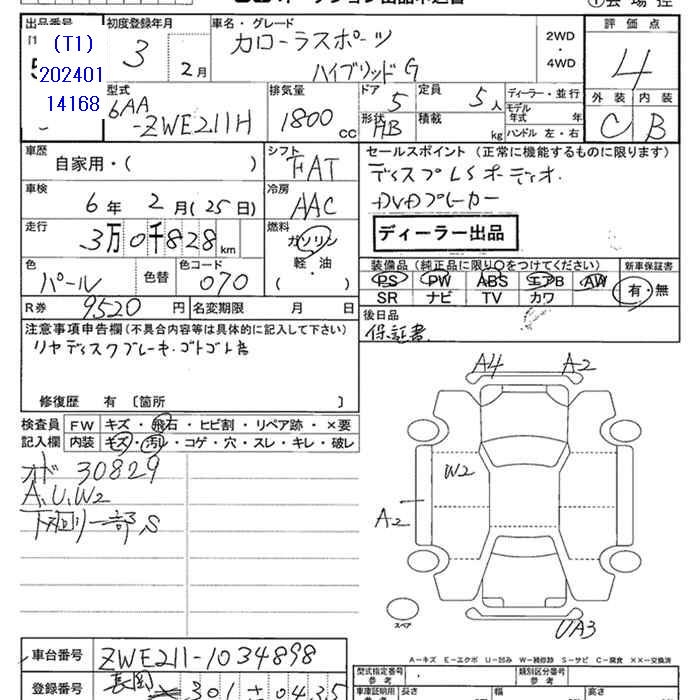 出品番号
(T1)
202401
14168
初度登録年月
3
2月
車名・グレード
カローラスポーツ
ハイブリッドG
2WD
・
4WD
評価点
4
外装 内装
C B
型式
6AA
-ZWE211H
排気量
1800 cc
ドア 5
形状 HB
定員 5人
積載 kg
ディーラー・並行
モデル年式 年式
ハンドル 左・右
車歴
自家用・( )
シフト
FAT
車検
6年 2月(25日)
冷房
AAC
走行
3万0千828km
燃料
ガソリン
軽・油
( )
色
パール
色替
色コード
070
R券 9520円
名変期限 月 日
セールスポイント(正常に機能するものに限ります)
ディスプレSオーディオ.
DVDプレーカー
ディーラー出品
装備品(純正品に限り○をつけてください)
PS PW ABS エアB AW
SR ナビ TV カワ
新車保証書
有・無
後日品
保証書
注意事項申告欄(不具合内容等は具体的に記入して下さい)
リヤディスクブレーキ.ゴトゴト音
修復歴 有〔箇所 〕
検査員
記入欄
FW キズ・飛石・ヒビ割・リペア跡・×要
内装 キズ・汚レ・コゲ・穴・スレ・キレ・破レ
オド 30829
A.U.W2
下廻リ一部S
A4
A2
W2
A2
UA3
スペア
A−キズ E−エクボ U−凹み W−補修跡 S−サビ C−腐食 ××−交換済
車台番号
ZWE211-1034898
登録番号
長岡 301 す 0435
型式指定番号
参考
類別区分番号
参考
車庫証明用
参考
長さ
幅
高さ